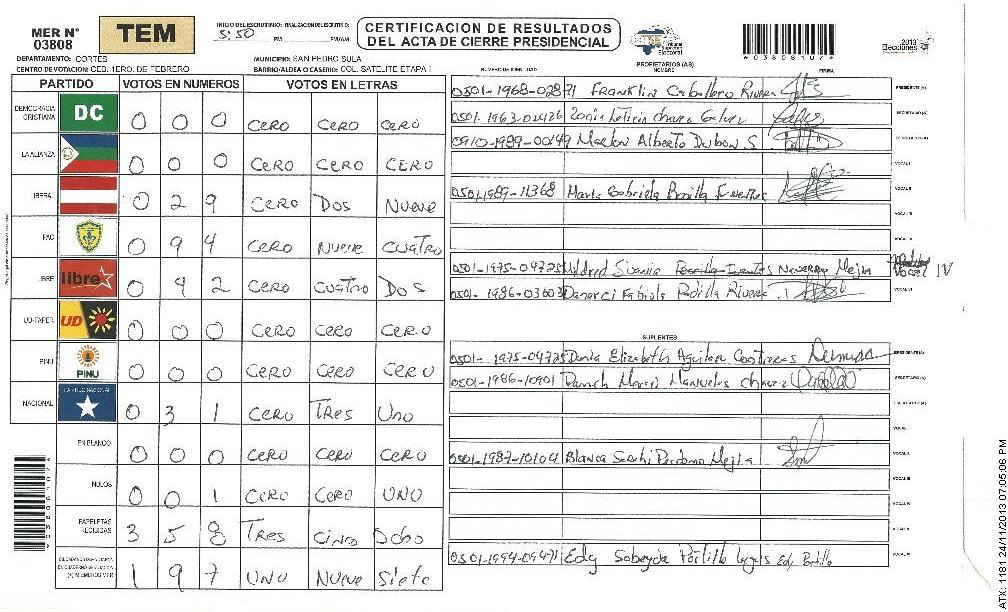 MER N° 03808
TEM
INICIO DEL ESCRUTINIO: FINALIZACION DEL ESCRUTINIO:
5:50 PM PM/AM
CERTIFICACION DE RESULTADOS
DEL ACTA DE CIERRE PRESIDENCIAL
TSE Tribunal Supremo Electoral
*03808107*
2013 Elecciones
DEPARTAMENTO: CORTES
MUNICIPIO: SAN PEDRO SULA
CENTRO DE VOTACION: CEB. 1ERO. DE FEBRERO
BARRIO/ALDEA O CASERIO: COL. SATELITE ETAPA I
PARTIDO VOTOS EN NUMEROS VOTOS EN LETRAS
DEMOCRACIA CRISTIANA DC 0 0 0 CERO CERO CERO
LA ALIANZA 0 0 0 CERO CERO CERO
LIBERAL 0 2 9 CERO DOS NUEVE
PAC 0 9 4 CERO NUEVE CUATRO
LIBRE libre 0 4 2 CERO CUATRO DOS
UD-FAPER UD 0 0 0 CERO CERO CERO
PINU PINU 0 0 0 CERO CERO CERO
NACIONAL PARTIDO NACIONAL 0 3 1 CERO TRES UNO
EN BLANCO 0 0 0 CERO CERO CERO
NULOS 0 0 1 CERO CERO UNO
PAPELETAS RECIBIDAS 3 5 8 TRES CINCO OCHO
1 9 7 UNO NUEVE SIETE
NUMERO DE IDENTIDAD PROPIETARIOS (AS) NOMBRE FIRMA
0501-1968-02871 Franklin Caballero Rivera PRESIDENTE (A)
0501-1963-02426 SECRETARIO (A)
0910-1989-00149 Marlon Alberto Dubon S.
VOCAL I
0501-1989-11368 Maria Gabriela Bonilla Fuentes VOCAL II
VOCAL III
0501-1975-04725 Mildred Navarro Mejia VOCEL IV
0501-1986-03603 Fabiola Padilla Rivera VOCAL VI
SUPLENTES
0501-1975-04725 Dunia Elizabeth Aguilar Contreras PRESIDENTE (A)
0501-1986-10901 SECRETARIO (A)
VOCAL I
0501-1987-10104 Blanca Perdomo Mejia VOCAL II
VOCAL III
VOCAL IV
VOCAL V
0501-1994-09471 Edy Sobeyda Portillo
ATX: 1181 24/11/2013 07:05:06 PM